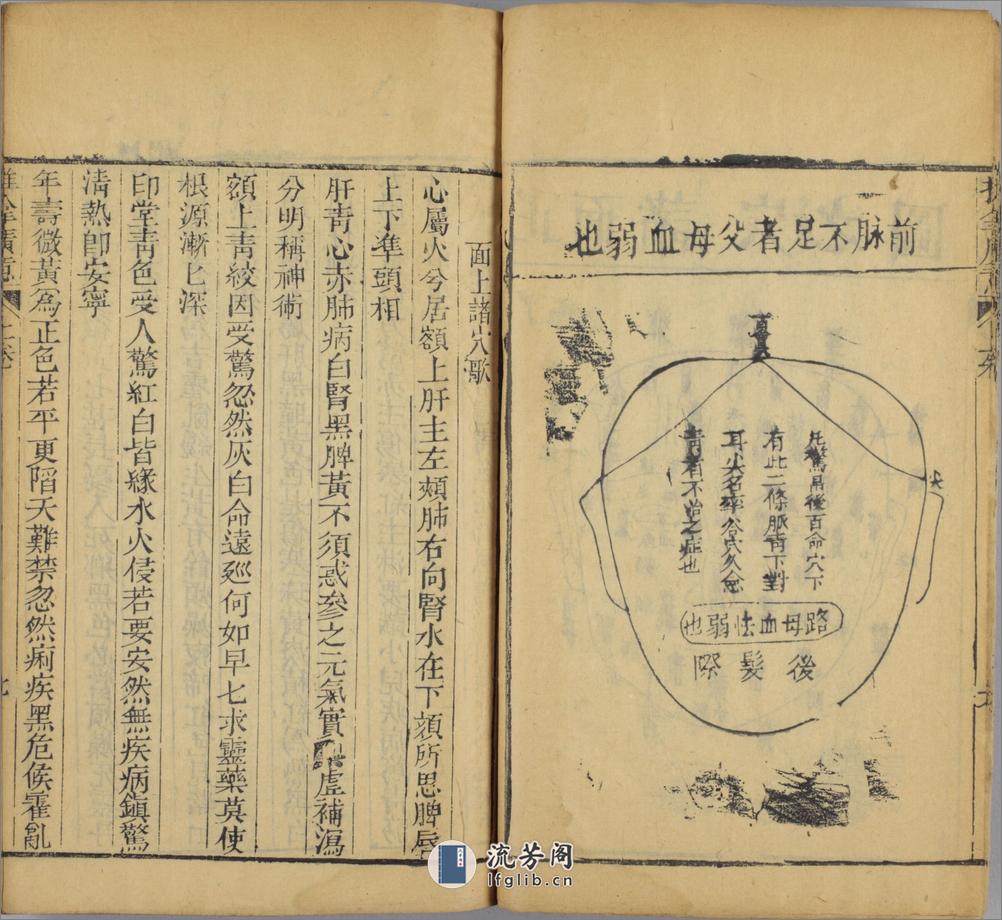 前脉不足者父母血弱也
百會
有此二條脈青下對
耳尖名率谷穴久念
青者不治之症也
路母血怯弱也
後髮際
面上諸穴歌
心屬火兮居額上肝主左頰肺右向腎水在下頦所思脾唇
上下準頭相
肝青心赤肺病白腎黑脾黃不須惑參之元氣實虛補瀉
分明稱神術
額上青紋因受驚忽然灰白命遠廵何如早匕求靈藥莫使
根源漸匕深
印堂青色受人驚紅白皆緣水火侵若要安然無疾病鎮驚
清熱卽安寧
年壽微黃為正色若平更陷夭難禁忽然痢疾黑危候霍亂
推拿廣意
上卷
七
流芳阁
lfglib.cn